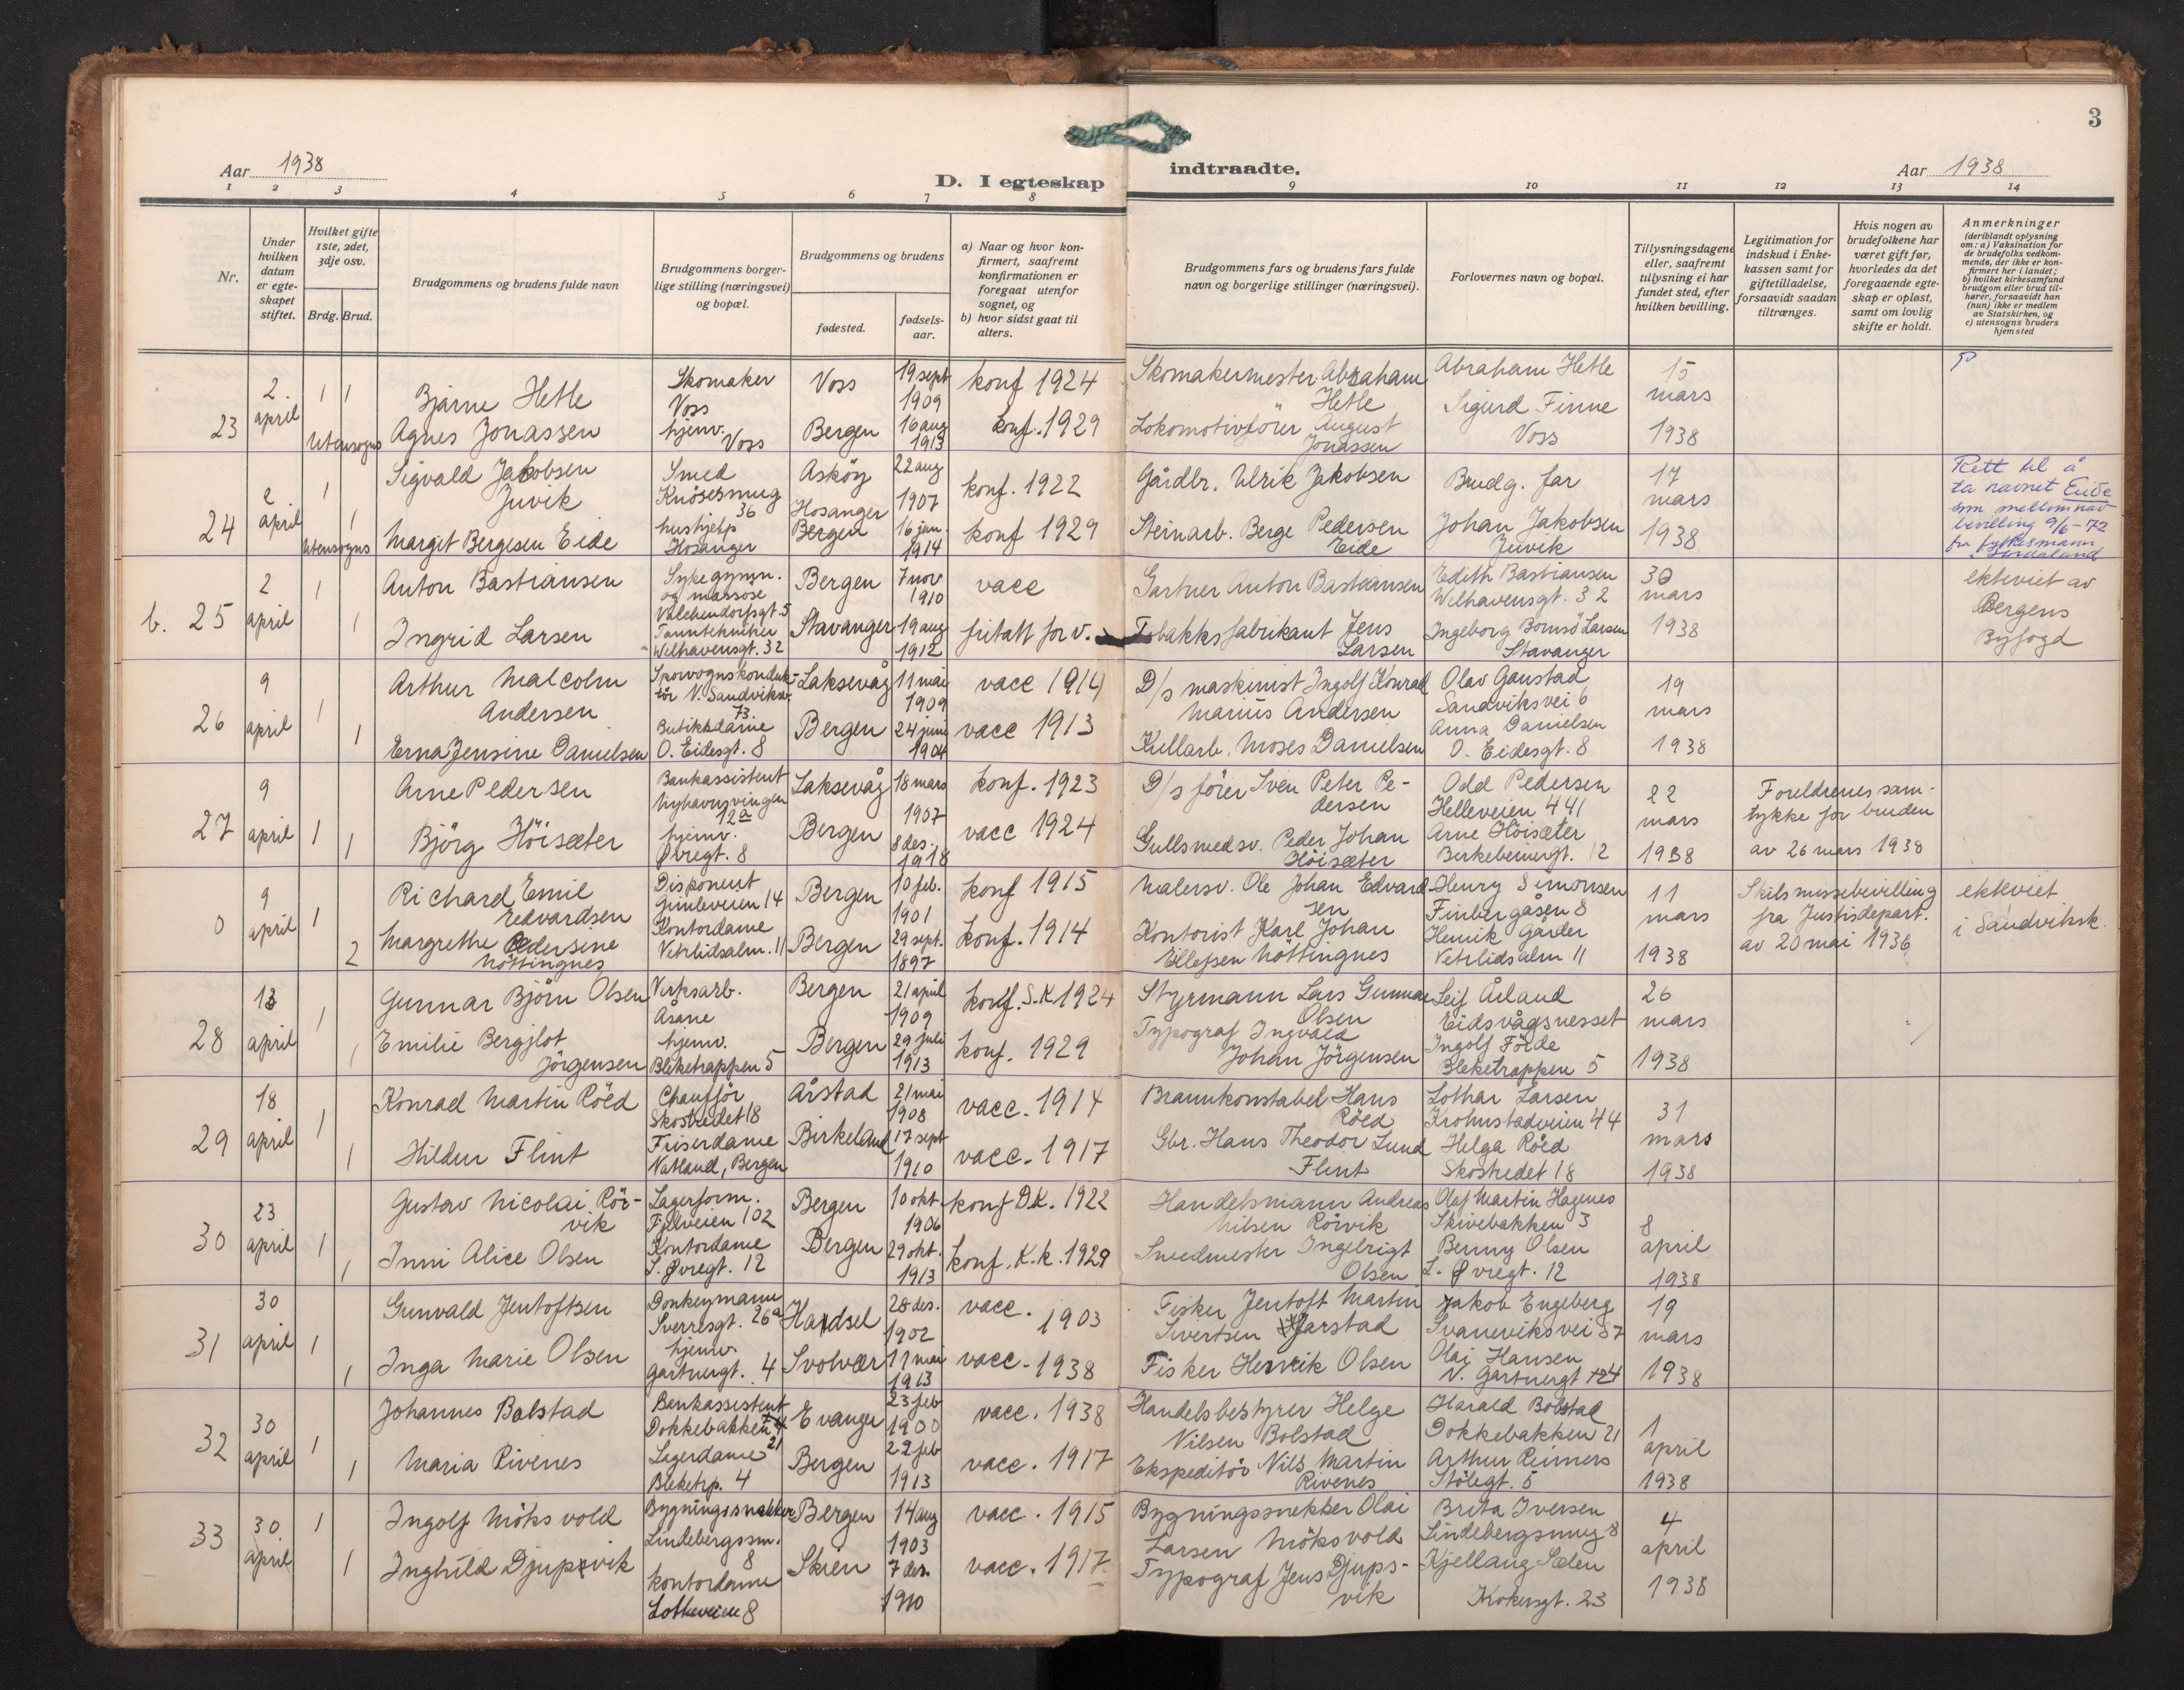 3
Aar 1938
D. I egteskap indtraadte.
Aar 1938
1 2 3 4 5 6 7 8 9 10 11 12 13 14
Nr.
Under hvilken datum er egte-skapet stiftet.
Hvilket gifte 1ste, 2det, 3dje osv.
Brdg. Brud.
Brudgommens og brudens fulde navn
Brudgommens borger-lige stilling (næringsvei) og bopæl.
Brudgommens og brudens
fødested.
fødsels-aar.
a) Naar og hvor kon-firmert, saafremt konfirmationen er foregaat utenfor sognet, og
b) hvor sidst gaat til alters.
Brudgommens fars og brudens fars fulde navn og borgerlige stillinger (næringsvei).
Forlovernes navn og bopæl.
Tillysningsdagene eller, saafremt tilysning ei har fundet sted, efter hvilken bevilling.
Legitimation for indskud i Enke-kassen samt for giftetilladelse, forsaavidt saadan tiltrænges.
Hvis nogen av brudefolkene har været gift før, hvorledes da det foregaaende egte-skap er opløst, samt om lovlig skifte er holdt.
Anmerkninger
(deriblandt oplysning om: a) Vaksination for de brudefolks vedkom-mende, der ikke er kon-firmert her i landet; b) hvilket kirkesamfund brudgom eller brud til-hører, forsaavidt han (hun) ikke er medlem av Statskirken, og c) utensogns bruders hjemsted
23 2. april 1 1 utensogns
Bjarne Hetle
Agnes Jonassen
Skomaker
Voss
hjemv.
Voss
Voss 19 sept 1909 konf 1924
Bergen 16 aug 1913 konf. 1929
Skomakermester Abraham Hetle
Lokomotivfører August Jonassen
Abraham Hetle
Sigurd Finne
Voss
15 mars 1938
24 2. april 1 1 utensogns
Sigvald Jakobsen Juvik
Margit Bergesen Eide
Smed
Knösesmug 36
hushjelp
Hosanger
Askøy 22 aug 1907 konf. 1922
Hosanger
Bergen 16 jan. 1914 konf 1929
Gårdbr. Ulrik Jakobsen
Steinarb. Berge Pedersen Eide
Brudg. far
Johan Jakobsen Juvik
17 mars 1938
Rett til å ta navnet Eide som mellomnav bevilling 9/6-72 fra fylkesmann i Hordaland
b. 25 2 april 1 1
Anton Bastiansen
Ingrid Larsen
Sykegymn. og massøse
Valchendorfsgt. 5
Tanntekniker
Welhavensgt. 32
Bergen 7 nov 1910 vacc
Stavanger 19 aug 1912 fritatt for v.
Gartner Anton Bastiansen
Tobakksfabrikant Jens Larsen
Edith Bastiansen
Welhavensgt. 32
Ingeborg Bomsö Larsen
Stavanger
30 mars 1938
ekteviet av Bergens Byfogd
26 9 april 1 1
Arthur Malcolm Andersen
Erna Jensine Danielsen
Sporvognskonduk-tör N. Sandviksv. 73
Butikkdame
O. Eidesgt. 8
Laksevåg 11 mai 1909 vacc 1914
Bergen 24 juni 1904 vacc 1913
D/s maskinist Ingolf Konrad Marius Andersen
Kullarb. Moses Danielsen
Olav Gaustad
Sandviksvei 6
Anna Danielsen
O. Eidesgt. 8
19 mars 1938
27 9 april 1 1
Arne Pedersen
Björg Höisæter
Bankassistent
Nyhavnsvingen 12a
hjemv.
Øvregt. 8
Laksevåg 18 mars 1907 konf. 1923
Bergen 8 des. 1918 vacc 1924
D/s förer Sven Peter Pe-dersen
Gullsmedsv. Peder Johan Höisæter
Odd Pedersen
Helleveien 441
Arne Höisæter
Birkebeinergt. 12
22 mars 1938
Foreldrenes sam-tykke for bruden av 26 mars 1938
0 9 april 1 2
Richard Emil Edvardsen
Margrethe Pedersine Nöttingnes
Disponent
Gimleveien 14
Kontordame
Vetrlidsalm. 11
Bergen 10 feb. 1901 konf 1915
Bergen 29 sept. 1897 konf. 1914
Malersv. Ole Johan Edvard-sen
Kontorist Karl Johan Ellefsen Nöttingnes
Henry Simonsen
Finbergåsen 8
Henrik Gårder
Vetrlidsalm 11
11 mars 1938
Skilsmissebevilling fra Justisdepart. av 20 mai 1936
ekteviet i Sandviksk.
28 13 april 1 1
Gunnar Björn Olsen
Emilie Bergjlot Jörgensen
Verksarb.
Åsane
hjemv.
Bleketrappen 5
Bergen 21 april 1909 konf. S.K 1924
Bergen 29 juli 1913 konf. 1929
Styrmann Lars Gunnar Olsen
Typograf Ingvald Johan Jörgensen
Leif Årland
Eidsvågsnesset
Ingolf Förde
Bleketrappen 5
26 mars 1938
29 18 april 1 1
Konrad Martin Röed
Hildur Flint
Chaufför
Skostredet 18
Friserdame
Natland, Bergen
Årstad 21 mai 1908 vacc. 1914
Birkeland 17 sept 1910 vacc. 1917
Brannkonstabel Hans Röed
Gbr. Hans Theodor Lund Flint
Lothar Larsen
Krohnstadveien 44
Helga Röed
Skostredet 18
31 mars 1938
30 23 april 1 1
Gustav Nicolai Rör-vik
Inni Alice Olsen
Lagerform.
Fjelveien 102
Kontordame
L. Øvregt. 12
Bergen 10 okt. 1906 konf D.K. 1922
Bergen 29 okt. 1913 konf. K.k. 1929
Handelsmann Andreas Nilsen Rörvik
Smedmester Ingebrigt Olsen
Olaf Martin Hagenes
Skivebakken 3
Benny Olsen
L. Øvregt. 12
8 april 1938
31 30 april 1 1
Gunvald Jentoftsen
Inga Marie Olsen
Donkeymann
Sverresgt. 26a
hjemv.
Gartnergt. 4
Hadsel 28 des. 1902 vacc. 1903
Svolvær 11 mai 1913 vacc. 1938
Fisker Jentoft Martin Sivertsen Kjarstad
Fisker Henrik Olsen
Jakob Engeberg
Svaneviksvei 57
Olai Hansen
N. Gartnergt 24
19 mars 1938
32 30 april 1 1
Johannes Bolstad
Maria Rivenes
Bankassistent
Dokkebakken 21
Lagerdame
Bleketrp. 4
Evanger 23 feb 1900 vacc. 1938
Bergen 22 feb 1913 vacc. 1917
Handelsbestyrer Helge Nilsen Bolstad
Ekspeditör Nils Martin Rivenes
Harald Bolstad
Dokkebakken 21
Arthur Reimers
Stölegt. 5
1 april 1938
33 30 april 1 1
Ingolf Möksvold
Inghild Djupsvik
Bygningssnekker
Lindebergssm. 8
kontordame
Lotheveien 8
Bergen 14 aug 1903 vacc. 1915
Skien 7 des. 1910 vacc. 1917
Bygningssnekker Olai Larsen Möksvold
Typograf Jens Djups-vik
Breta Iversen
Lindebergsmug 8
Kjellaug Sælen
Krokensgt. 23
4 april 1938